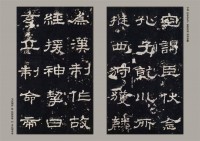 空謁臣伏念
孔子乾川所
挺西狩獲麟
為漢制作故
孝經援神挈
玄丘制命帝